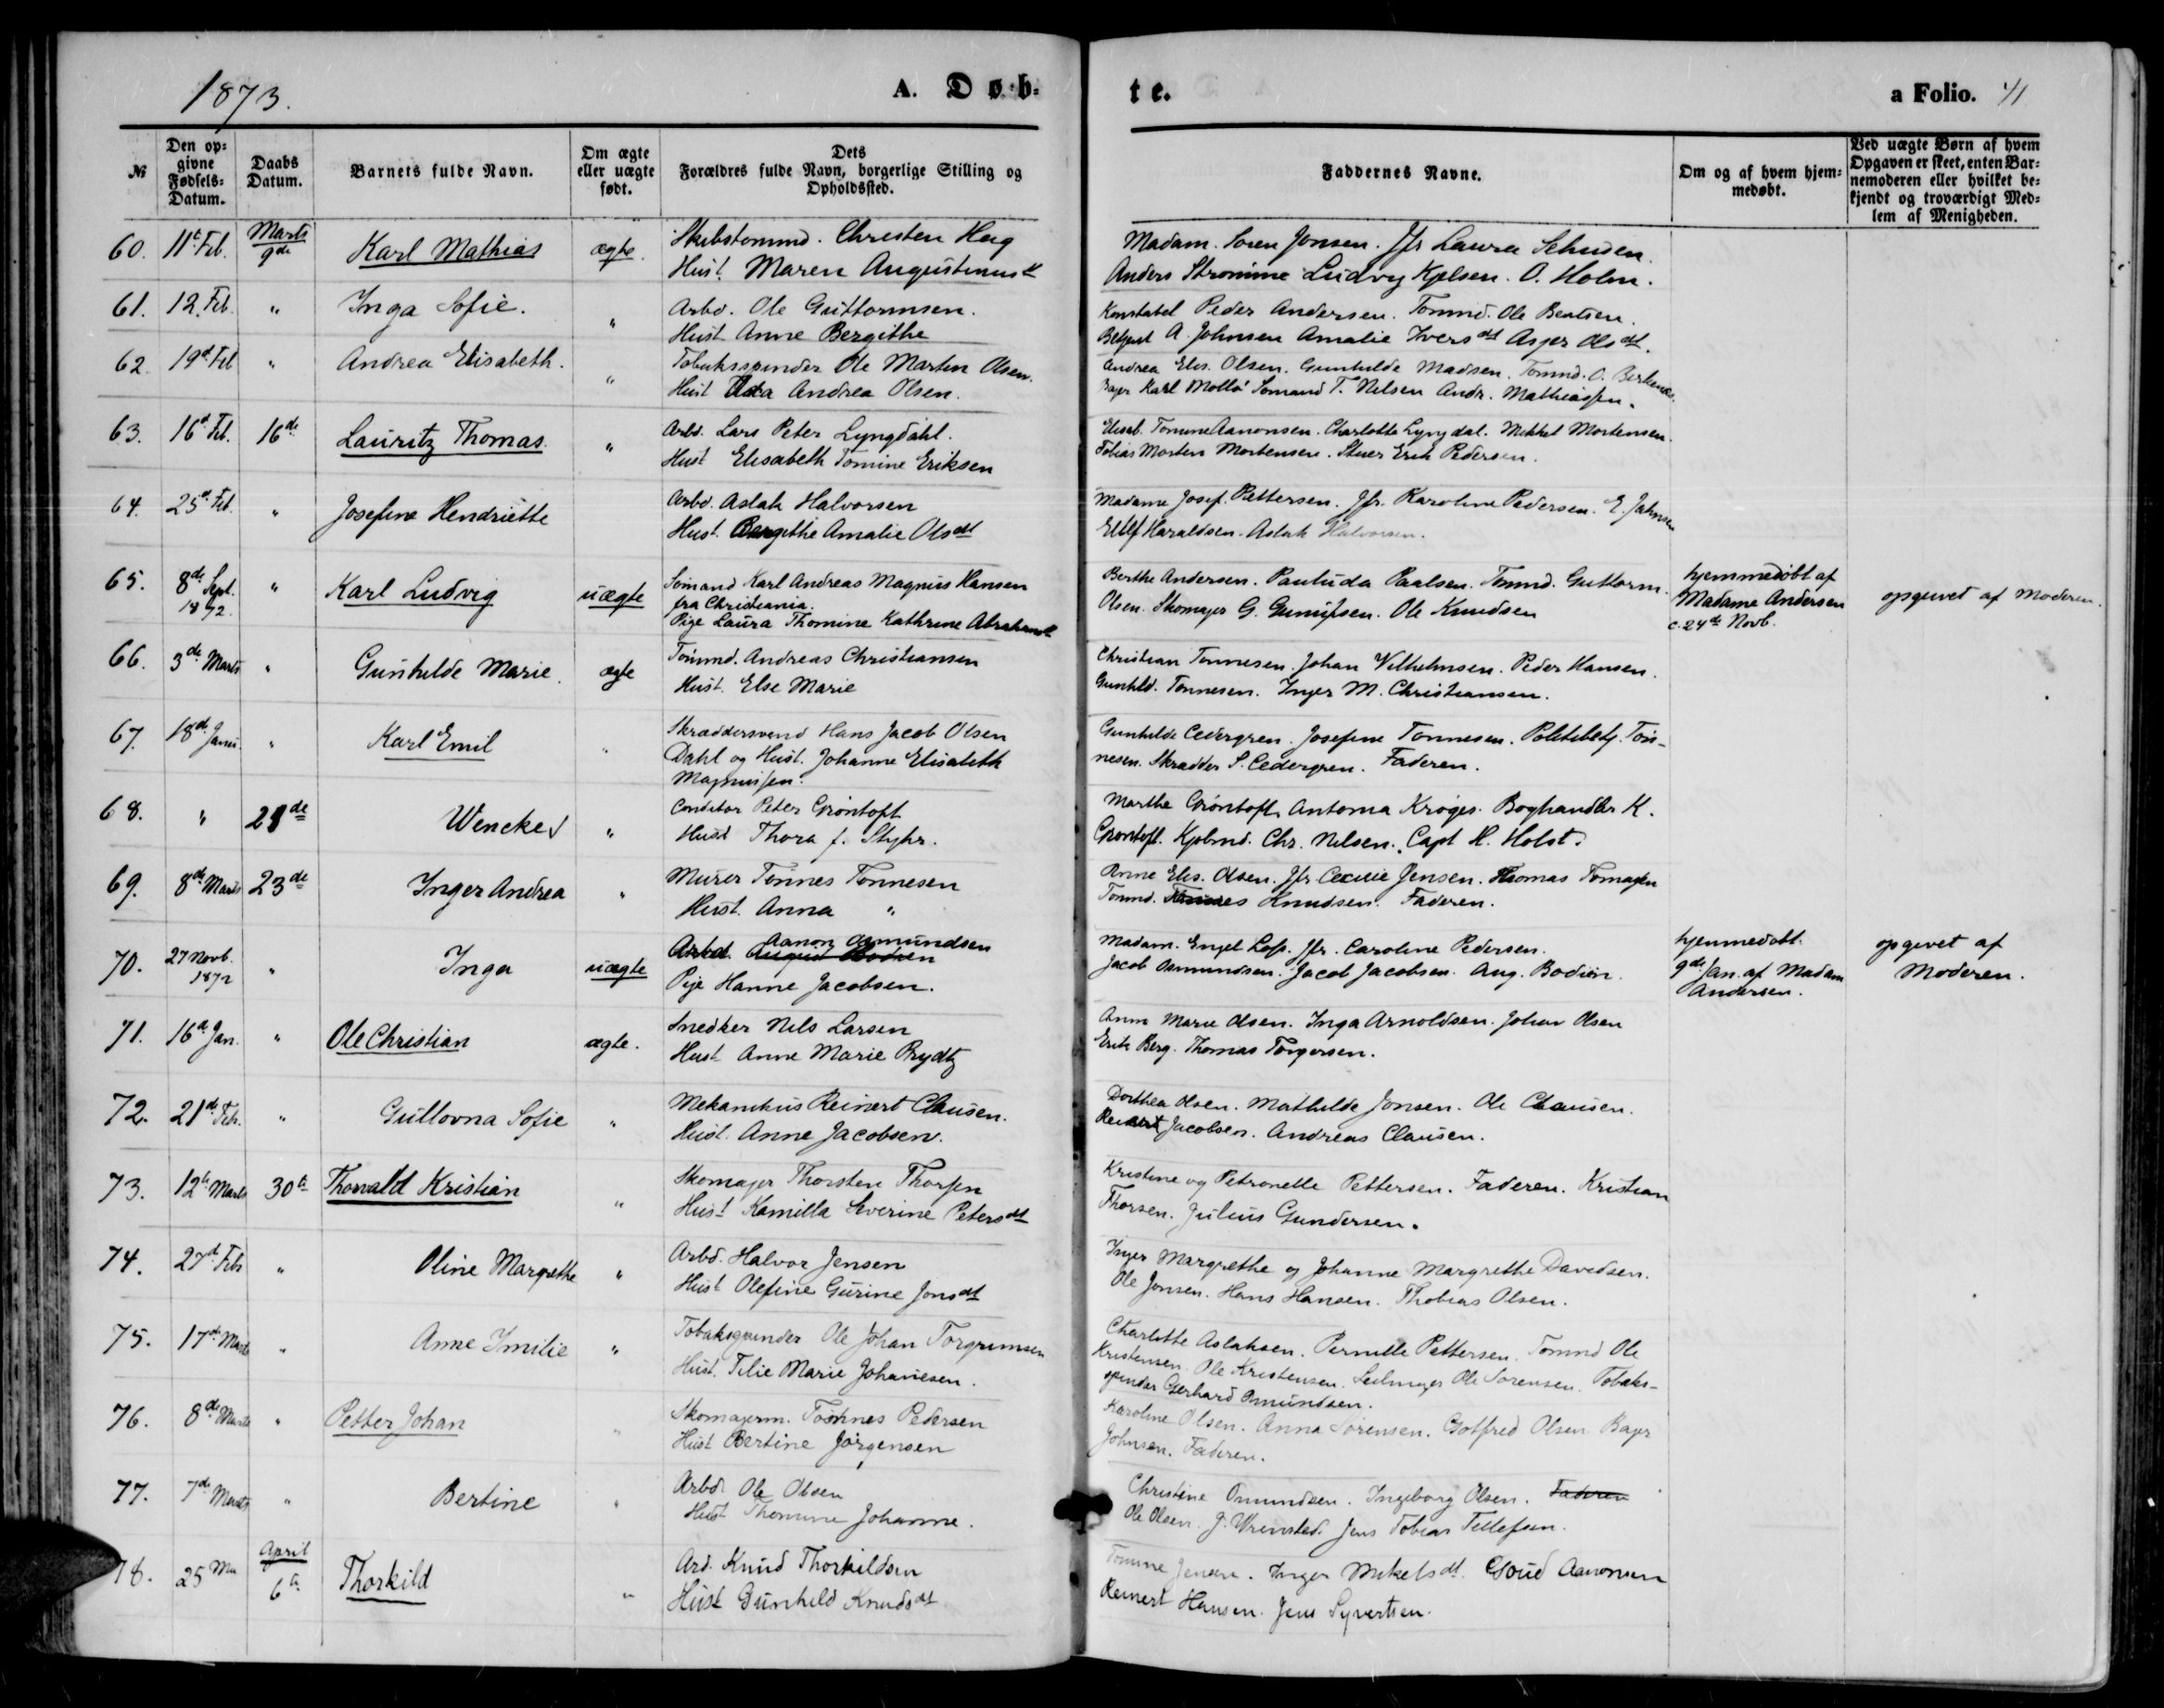 1873. A. Døb-
te. a Folio. 41
№ Den opgivne Fødsels-Datum. Daabs Datum. Barnets fulde Navn. Om ægte eller uægte født. Dets Forældres fulde Navn, borgerlige Stilling og Opholdssted. Faddernes Navne. Om og af hvem hjemmedøbt. Ved uægte Børn af hvem Opgaven er skeet, enten Barnemoderen eller hvilket bekjendt og troværdigt Medlem af Menigheden.
60. 11t Feb. Marts 9de Karl Mathias ægte. Skibstømmd. Christen Heg
Hust. Maren Augustinusd
Madam. Soren Jonsen. Jfr Laura
Anders Strømme Ludvig Kjelsen. O. Holm.
61. 12. Feb. " Inga Sofie. " Arbd. Ole Guttormsen.
Hust. Anne Bergithe
Konstabel Peder Andersen. Tømmd. Ole Bentsen.
A. Johnsen Amalie Iversdt Asjer Olsdt.
62. 19d Feb " Andrea Elisabeth. " Tobaksspinder Ole Martin Olsen.
Hust Andrea Olsen.
Andrea Elis. Olsen. Gunhilde Madsen. Tømmd. O.
Karl Somand T. Nilsen Andr. Mathiassen.
63. 16d Feb. 16de Lauritz Thomas " Arbd. Lars Peter Lyngdahl.
Hust Elisabeth Tomine Eriksen
Elisab. Tomine Aanonsen. Charlotte Lyngdal. Mikkel Mortensen.
Tobias Morten Mortensen. Erik Pedersen.
64. 25d Feb. " Josefine Hendriette Arbd. Aslak Halvorsen
Hust. Bergithe Amalie Olsdt
Madame Josef. Pettersen. Jfr. Karoline Pedersen. E. Jahnsen
Haraldsen. Aslak Halvorsen.
65. 8de Sept. 1872. " Karl Ludvig uægte Sømand Karl Andreas Magnus Hansen
fra Christiania.
Pige Laura Thomine Kathrine
Berthe Andersen. Paulsen. Tømmd. Guttorm
Olsen. Skomager G. Gunufsen. Ole Knudsen
hjemmedøbt af
Madame Andersen
c. 24de Novb.
opgivet af Moderen.
66. 3de Marts " Gunhilde Marie. ægte Tømmd. Andreas Christiansen
Hust. Else Marie
Christian Tønnesen. Johan Vilhelmsen. Peder Hansen.
Gunhld. Tønnesen. Inger M. Christiansen.
67. 18de Janu. " Karl Emil " Skræddersvend Hans Jacob Olsen
Dahl og Hust. Johanne Elisabeth
Magnussen.
Gunhilde Cedergren. Josefine Tønnesen. Politibetj. Tøn-
nesen. Skrædder S. Cedergren. Faderen.
68. " 21de Wencke " Conditor Peter Grøntoft
Hust Thora f. Styhr.
Marthe Grøntoft. Antonia Boghandler K.
Grøntoft. Kjøbmd. Chr. Nilsen. Capt H. Holst.
69. 8de Marts 23de Inger Andrea " Murer Tønnes Tønnesen
Hust. Anna "
Anne Elis. Olsen. Jfr. Cecilie Jensen. Thomas
Tømmd. Knudsen. Faderen.
70. 27 Novb. 1872 " Inga uægte Aanon Osmundsen
Arbd. August Bodien
Pige Hanne Jacobsen.
Madam. Engel Jfr. Caroline Pedersen.
Jacob Osmundsen. Jacob Jacobsen. Aug. Bodien.
hjemmedøbt.
9de Jan. af Madam
Andersen.
opgivet af
Moderen.
71. 16d Jan. " Ole Christian ægte. Snedker Nils Larsen
Hust Anne Marie Rydtz
Anne Marie Olsen. Inga Arnoldsen. Johan Olsen
Erik Berg. Thomas Torgersen.
72. 21de Feb. " Gullovna Sofie " Mekanikus Reinert Clausen.
Hust. Anne Jacobsen.
Dorthea Olsen. Mathilde Jonsen. Ole Clausen.
Reinert Jacobsen. Andreas Clausen.
73. 12te Marts 30te Thorvald Kristian " Skomager Thorsten Thorsen
Hust Kamilla Severine Petersdt
Kristine og Petronelle Pettersen. Faderen. Kristian
Thorsen. Julius Gundersen.
74. 27d Feb " Oline Margrethe " Arbd. Halvor Jensen
Hust Olefine Gurine Jonsdt
Inger Margrethe og Johanne Margrethe Davidsen.
Ole Jonsen. Hans Hansen. Thobias Olsen.
75. 17de Marts " Anne Imilie " Tobakspinder Ole Johan Torgrimsen
Hust. Tilie Marie Johanesen.
Charlotte Aslaksen. Pernille Pettersen. Tømmd Ole
Kristensen. Ole Kristensen. Seilmager Ole Sørensen. Tobaks-
spinder Gerhard Omundsen.
76. 8de Marts " Petter Johan " Skomagerm. Tønnes Pedersen
Hust Bertine Jørgensen
Karoline Olsen. Anna Sørensen. Gotfred Olsen. Bager
Johnsen. Faderen.
77. 7de Marts " Bertine " Arbd. Ole Olsen
Hust Thomine Johanne.
Christine Omundsen. Ingeborg Olsen. Faderen
Ole Olsen. J. Wrinsted. Jens Tobias Tellefsen.
78. 25 Ma April 6te Thorkild " Ard. Knud Thorkildsen
Hust Gunhild Knudsdt
Tomine Jensen. Inger Mikelsdt. Aanonsen
Reinert Hansen. Jens Syvertsen.